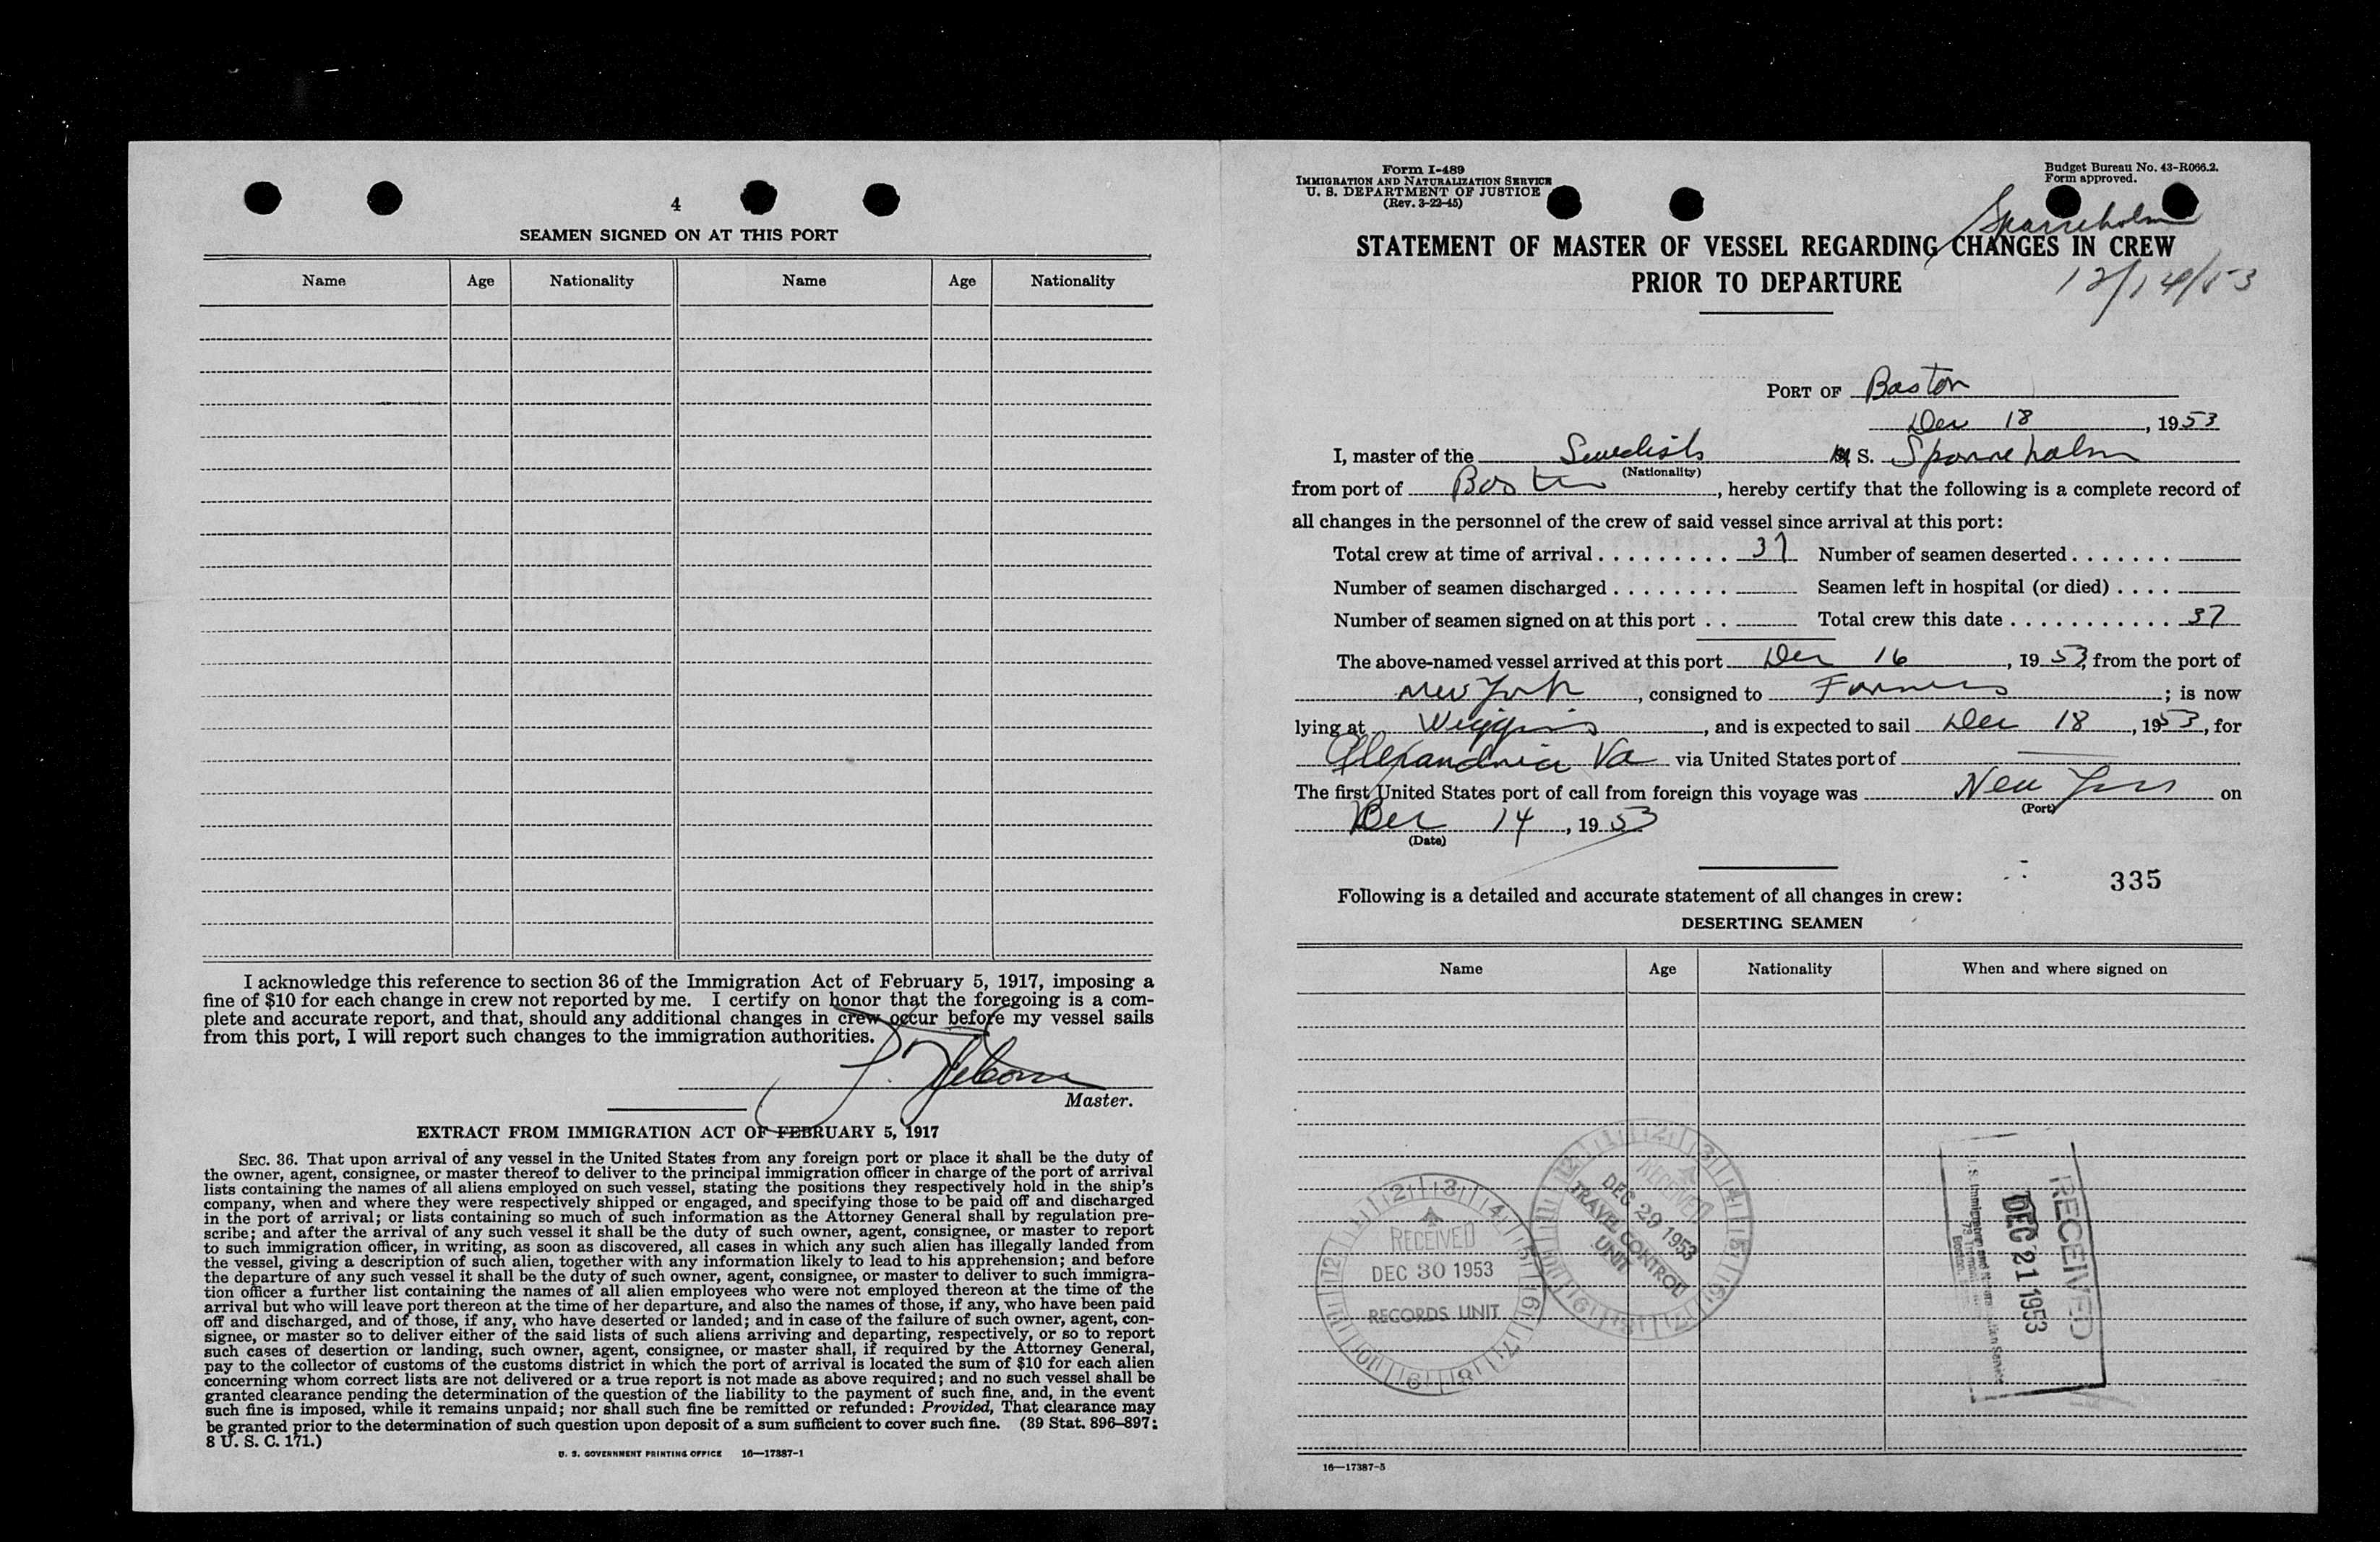 4
SEAMEN SIGNED ON AT THIS PORT
Name Age Nationality Name Age Nationality
I acknowledge this reference to section 36 of the Immigration Act of February 5, 1917, imposing a
fine of $10 for each change in crew not reported by me. I certify on honor that the foregoing is a com-
plete and accurate report, and that, should any additional changes in crew occur before my vessel sails
from this port, I will report such changes to the immigration authorities.
Master.
EXTRACT FROM IMMIGRATION ACT OF FEBRUARY 5, 1917
SEC. 36. That upon arrival of any vessel in the United States from any foreign port or place it shall be the duty of
the owner, agent, consignee, or master thereof to deliver to the principal immigration officer in charge of the port of arrival
lists containing the names of all aliens employed on such vessel, stating the positions they respectively hold in the ship's
company, when and where they were respectively shipped or engaged, and specifying those to be paid off and discharged
in the port of arrival; or lists containing so much of such information as the Attorney General shall by regulation pre-
scribe; and after the arrival of any such vessel it shall be the duty of such owner, agent, consignee, or master to report
to such immigration officer, in writing, as soon as discovered, all cases in which any such alien has illegally landed from
the vessel, giving a description of such alien, together with any information likely to lead to his apprehension; and before
the departure of any such vessel it shall be the duty of such owner, agent, consignee, or master to deliver to such immigra-
tion officer a further list containing the names of all alien employees who were not employed thereon at the time of the
arrival but who will leave port thereon at the time of her departure, and also the names of those, if any, who have been paid
off and discharged, and of those, if any, who have deserted or landed; and in case of the failure of such owner, agent, con-
signee, or master so to deliver either of the said lists of such aliens arriving and departing, respectively, or so to report
such cases of desertion or landing, such owner, agent, consignee, or master shall, if required by the Attorney General,
pay to the collector of customs of the customs district in which the port of arrival is located the sum of $10 for each alien
concerning whom correct lists are not delivered or a true report is not made as above required; and no such vessel shall be
granted clearance pending the determination of the question of the liability to the payment of such fine, and, in the event
such fine is imposed, while it remains unpaid; nor shall such fine be remitted or refunded: Provided, That clearance may
be granted prior to the determination of such question upon deposit of a sum sufficient to cover such fine. (39 Stat. 896–897;
8 U. S. C. 171.)
U. S. GOVERNMENT PRINTING OFFICE 16—17387-1
Form I-489
IMMIGRATION AND NATURALIZATION SERVICE
U. S. DEPARTMENT OF JUSTICE
(Rev. 3-22-45)
Budget Bureau No. 43-R066.2.
Form approved.
Sparreholm
STATEMENT OF MASTER OF VESSEL REGARDING CHANGES IN CREW
PRIOR TO DEPARTURE
12/14/53
PORT OF Boston
Dec 18, 1953
I, master of the Swedish M S. Sparreholm
(Nationality)
from port of Boston, hereby certify that the following is a complete record of
all changes in the personnel of the crew of said vessel since arrival at this port:
Total crew at time of arrival . . . . . . . . . 37 Number of seamen deserted . . . . . . .
Number of seamen discharged . . . . . . . . Seamen left in hospital (or died) . . . .
Number of seamen signed on at this port . . Total crew this date . . . . . . . . . . . 37
The above-named vessel arrived at this port Dec 16, 1953, from the port of
New York, consigned to Furness; is now
lying at Wiggins, and is expected to sail Dec 18, 1953, for
Alexandria Va via United States port of
The first United States port of call from foreign this voyage was New York on
(Port)
Dec 14, 1953
(Date)
335
Following is a detailed and accurate statement of all changes in crew:
DESERTING SEAMEN
Name Age Nationality When and where signed on
RECEIVED
DEC 30 1953
RECORDS UNIT
RECEIVED
DEC 29 1953
TRAVEL CONTROL
UNIT
RECEIVED
DEC 21 1953
16—17387-5